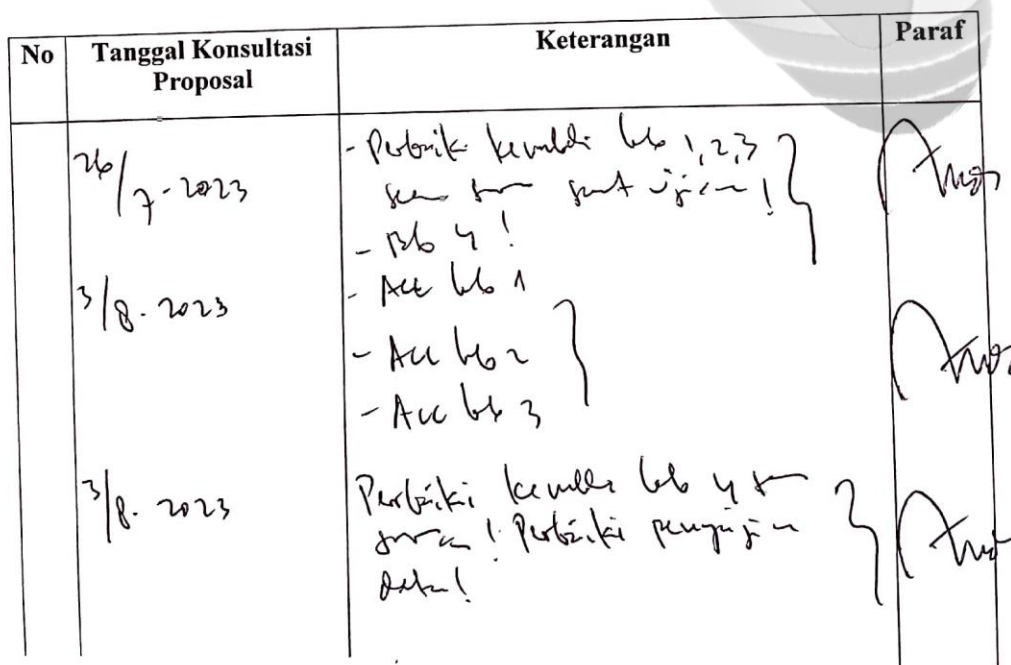 No Tanggal Konsultasi Proposal Keterangan Paraf
26/7-2023
- Perbaiki kembali bab 1, 2, 3
saran ujian!
- Bab 4!
3/8. 2023
- Acc bab 1
- Acc bab 2
- Acc bab 3
3/8. 2023
Perbaiki kembali bab 4
saran! Perbaiki penyajian
data!